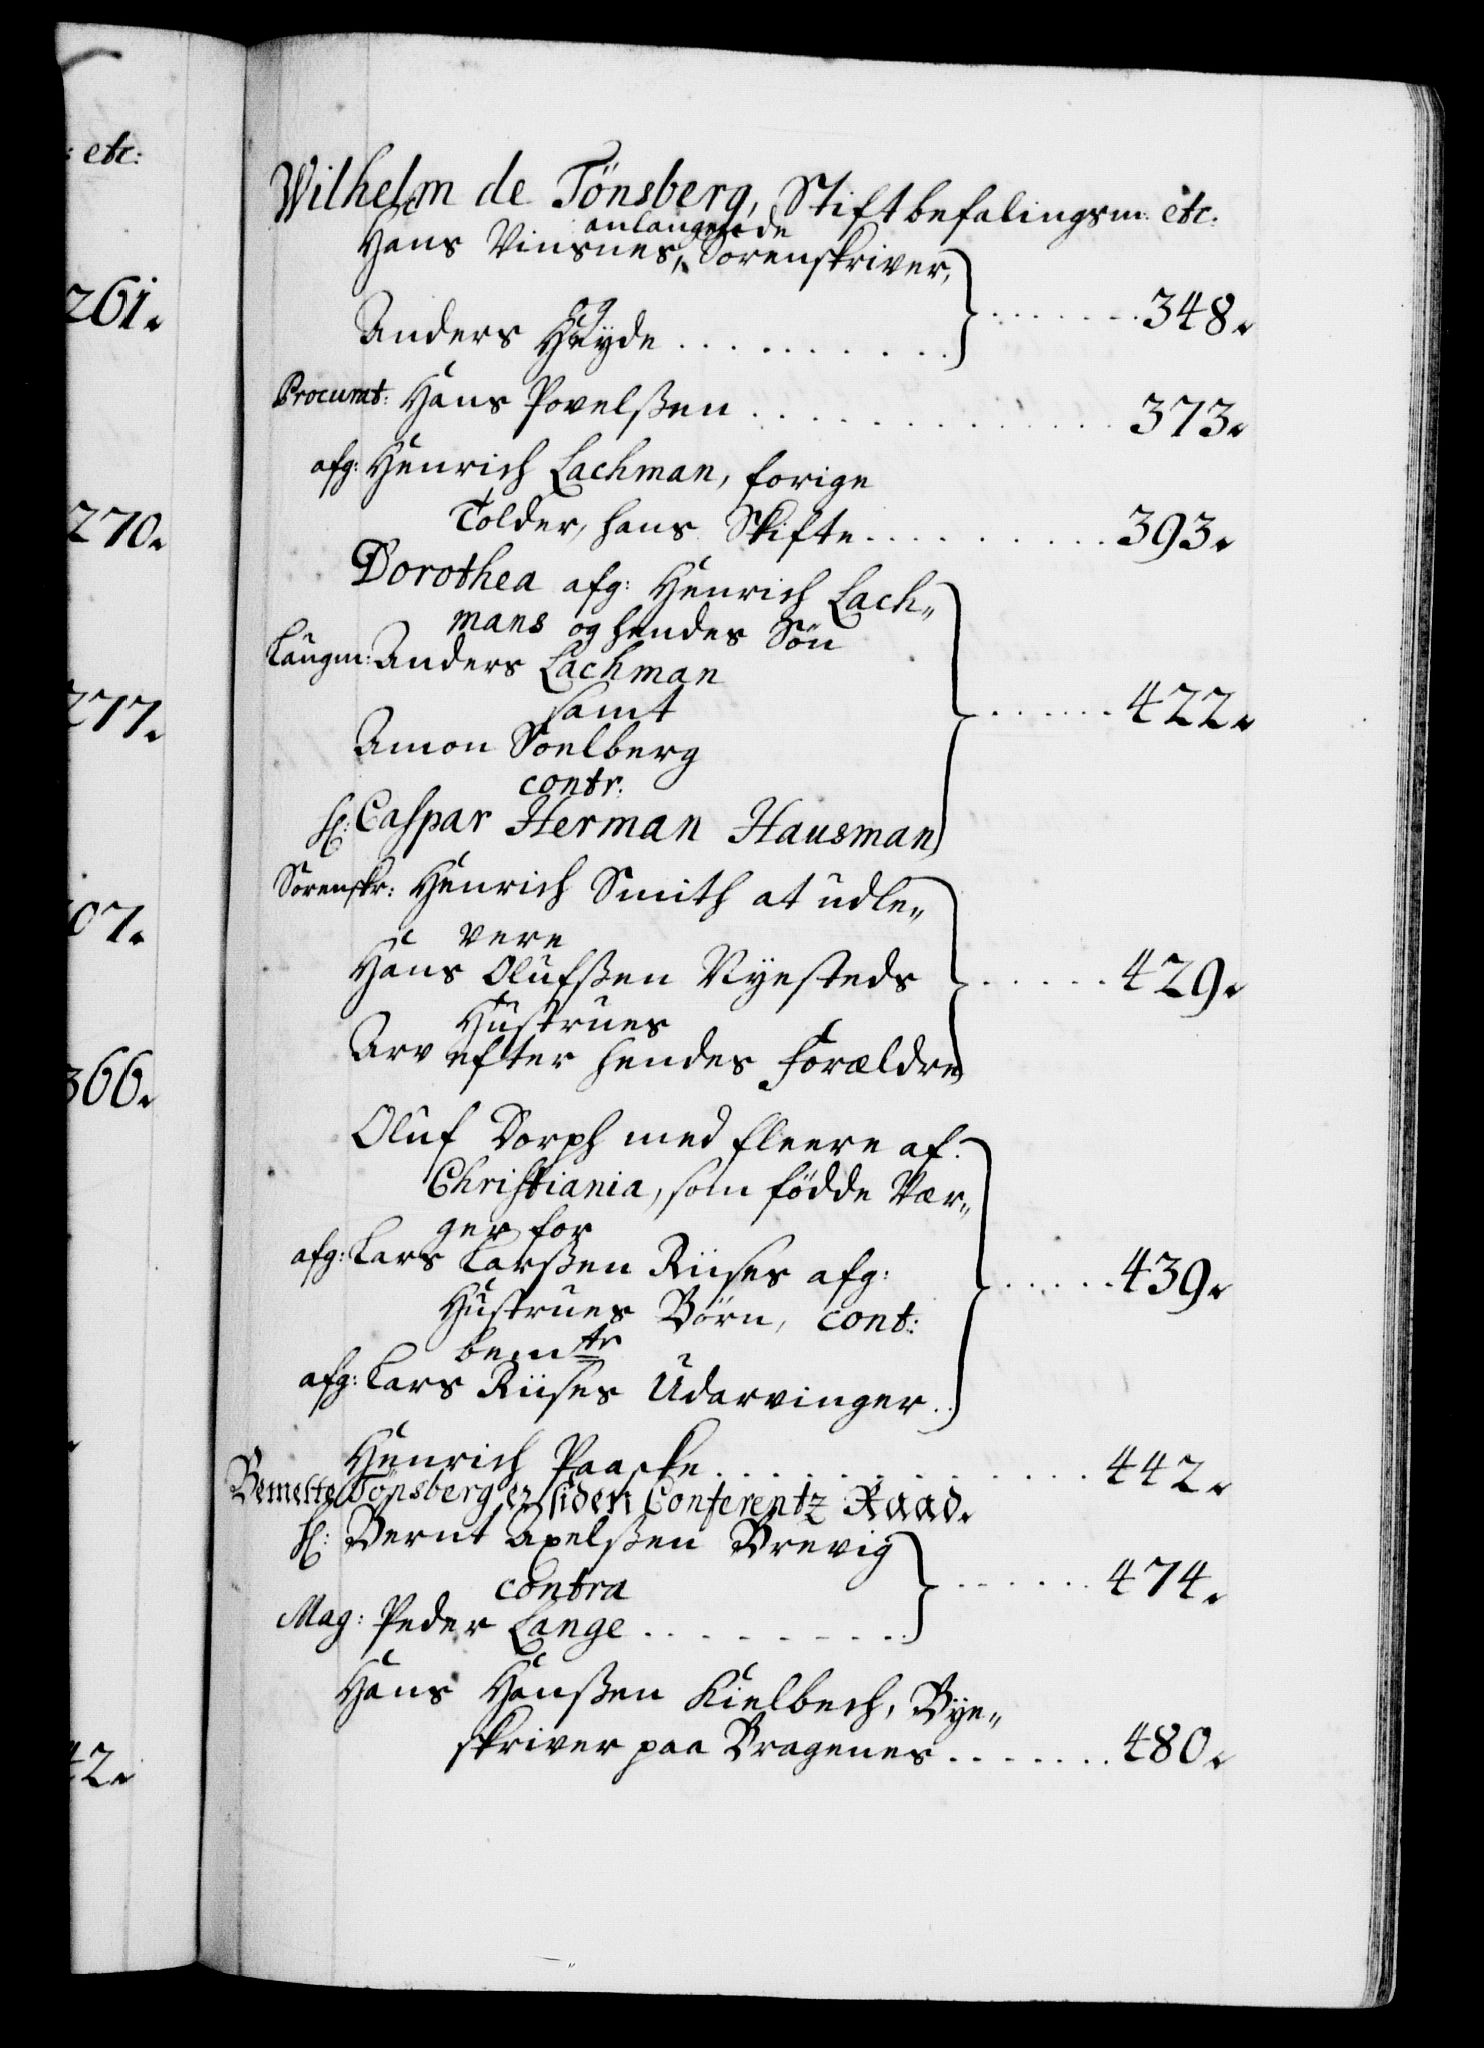 : etc:
261.
270.
277.
07.
366.
42.
Wilhelm de Tönsberg, Stiftbefalingsm: etc:
anlangende
Hans Vinsnes, Sorenskriver,
og
Anders Heyde . . . . . . . . . . 348.
Procurat: Hans Povelßen . . . . . . . . . . . . . 373.
afg: Henrich Lachman, forige
Tolder, hans Skifte . . . . . . . . . 393.
Dorothea afg: Henrich Lach„
mans og hendes Sön
Laugm: Anders Lachman
samt . . . . . . 422.
Amon Soelberg
contr:
Hl: Caspar Herman Hausman
Sorenskr: Henrich Smith at udle„
vere
Hans Olufßen Nyesteds . . . . . 429.
Hustrues
Arv efter hendes Forældre
Oluf Dorph med fleere af
Christiania, som födde Vær„
ger for
afg: Lars Larßen Riises afg: . . . . . 439.
Hustrues Börn, cont:
bemte
afg: Lars Riises Udarvinger . .
Henrich Paaske . . . . . . . . . . . . 442.
Bemelte Tönsberg er siden Conferentz Raad.
Hl: Bernt Axelßen Brevig
contra . . . . . . 474.
Mag: Peder Lange . . . . . . . .
Hans Hanßen Kielbech, Bye„
skriver paa Bragenes . . . . . . . 480.